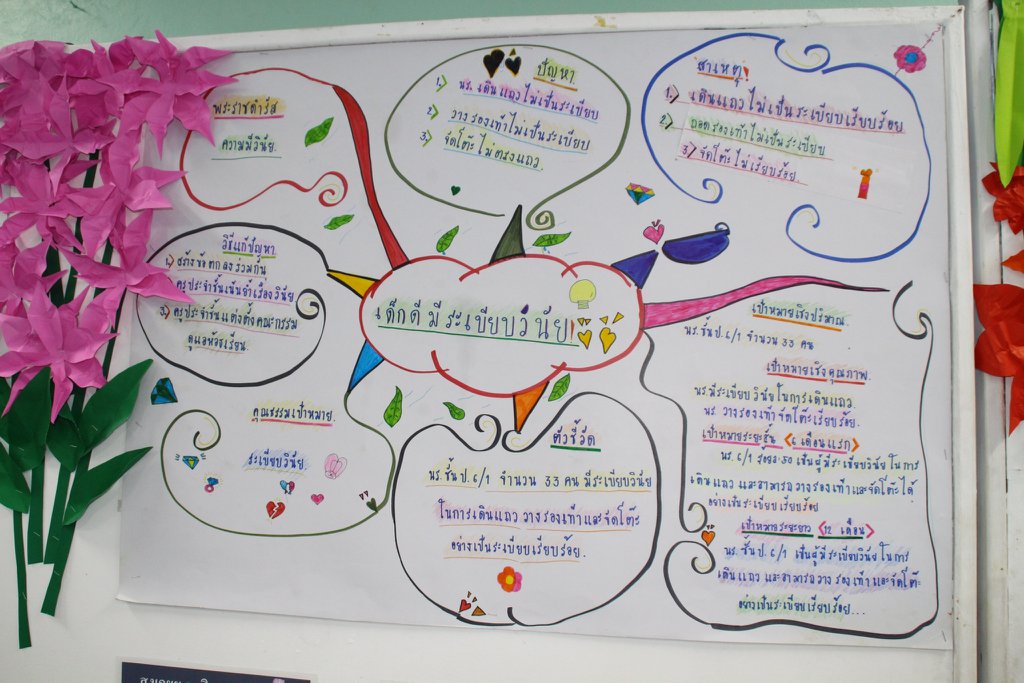 พระราชดำรัส
ความมีวินัย
ปัญหา
1) นร. เดินแถวไม่เป็นระเบียบ
2) วางรองเท้าไม่เป็นระเบียบ
3) จัดโต๊ะไม่ตรงแถว.
สาเหตุ
1) เดินแถวไม่เป็นระเบียบเรียบร้อย
2) ถอดรองเท้าไม่เป็นระเบียบ
3) จัดโต๊ะไม่เรียบร้อย.
วิธีแก้ปัญหา
1) สร้างข้อตกลงร่วมกัน
ครูประจำชั้นเน้นย้ำเรื่องวินัย
3) ครูประจำชั้นแต่งตั้งคณะกรรม
ดูแลห้องเรียน.
เด็กดีมีระเบียบวินัย
เป้าหมายเชิงปริมาณ.
นร.ชั้นป.6/1 จำนวน 33 คน
เป้าหมายเชิงคุณภาพ.
นร.มีระเบียบวินัยในการเดินแถว.
นร. วางรองเท้าจัดโต๊ะเรียบร้อย.
เป้าหมายระยะสั้น <6 เดือนแรก>
นร. 6/1 ร้อยละ 50 เป็นผู้มีระเบียบวินัย ในการ
เดินแถว และสามารถวางรองเท้าและจัดโต๊ะได้
อย่างเป็นระเบียบเรียบร้อย
เป้าหมายระยะยาว <12 เดือน>
นร. ชั้นป. 6/1 เป็นผู้มีระเบียบวินัย ในการ
เดินแถว และสามารถวางรองเท้าและจัดโต๊ะ
อย่างเป็นระเบียบเรียบร้อย...
คุณธรรมเป้าหมาย.
ระเบียบวินัย.
ตัวชี้วัด
นร.ชั้นป.6/1 จำนวน 33 คน มีระเบียบวินัย
ในการเดินแถว วางรองเท้าและจัดโต๊ะ
อย่างเป็นระเบียบเรียบร้อย.